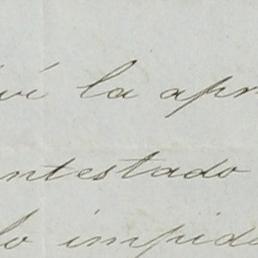 ví la apr
ntestado
lo impida